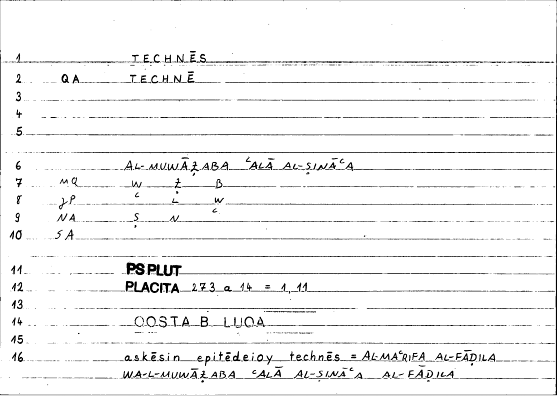 1 TECHNĒS
2 QA TECHNĒ
3
4
5
6 AL-MUWĀẒABA ʿALĀ AL-ṢINĀʿA
7 MQ W Ẓ B
8 ʿ L W
9 NA Ṣ N ʿ
10 SA
11 PS PLUT
12 PLACITA 273 a 14 = 1, 11
13
14 QOSTA B. LUQA
15
16 askēsin epitēdeioy technēs = AL-MAʿRIFA AL-FĀḌILA
WA-L-MUWĀẒABA ʿALĀ AL-ṢINĀʿA AL-FĀḌILA